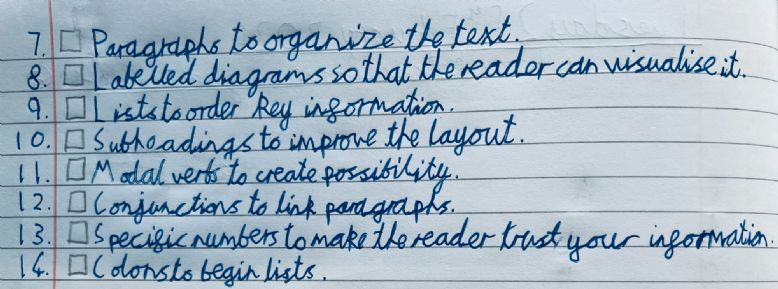 7. ☐ Paragraphs to organize the text.
8. ☐ Labelled diagrams so that the reader can visualise it.
9. ☐ Lists to order key information.
10. ☐ Subheadings to improve the layout.
11. ☐ Modal verbs to create possibility.
12. ☐ Conjunctions to link paragraphs.
13. ☐ Specific numbers to make the reader trust your information.
14. ☐ Colons to begin lists.